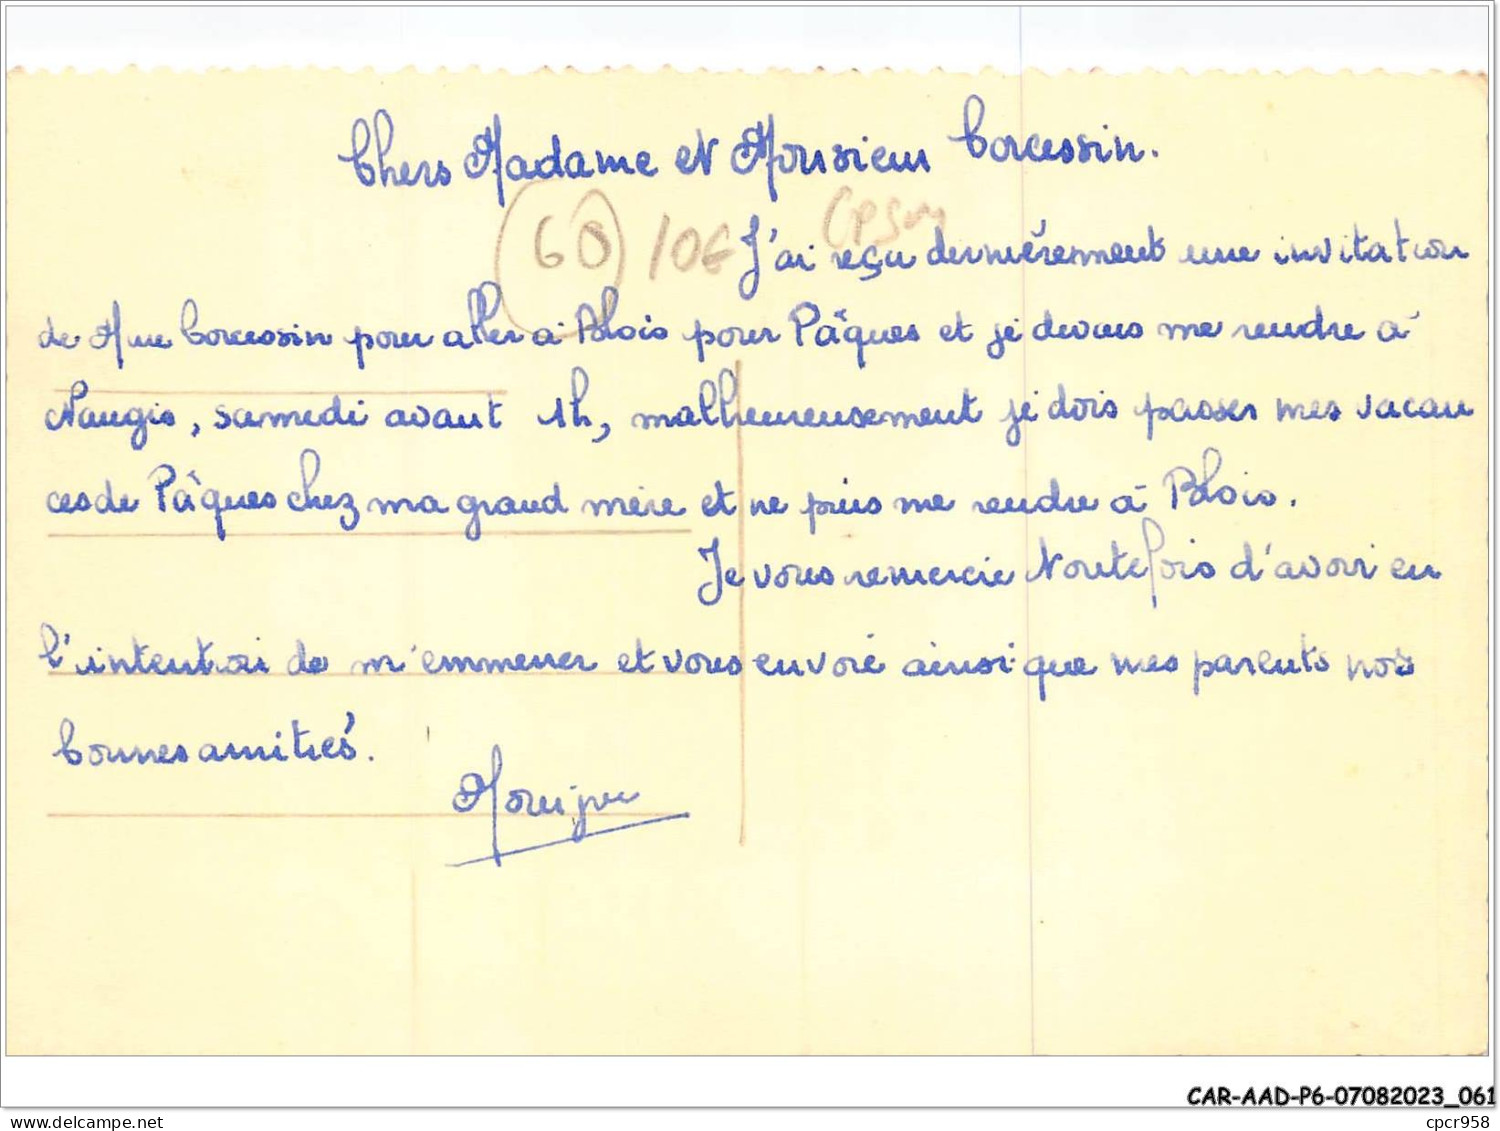 Chers Madame et Monsieur Corcessin.
60 10€ CPSM
J'ai reçu dernièrement une invitation
de Mme Corcessin pour aller à Blois pour Pâques et je devais me rendre à
Nangis, samedi avant 1h, malheureusement je dois passer mes vacan
ces de Pâques chez ma grand mère et ne puis me rendre à Blois.
Je vous remercie toutefois d'avoir eu
l'intention de m'emmener et vous envoie ainsi que mes parents nos
bonnes amitiés.
Monique
CAR-AAD-P6-07082023_061
www.delcampe.net
cpcr958